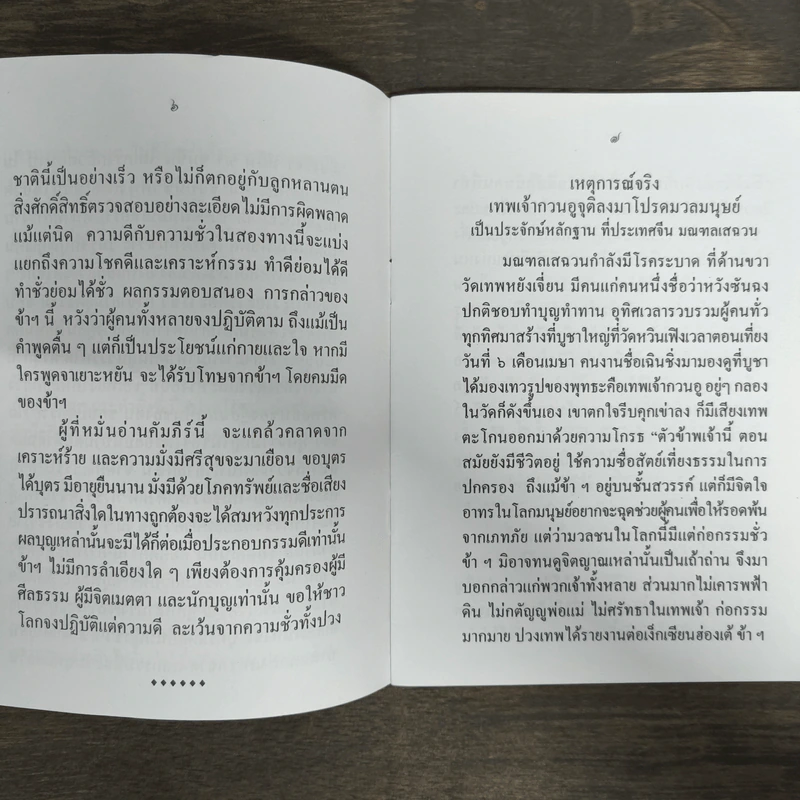 ๖
ชาตินี้เป็นอย่างเร็ว หรือไม่ก็ตกอยู่กับลูกหลานตน
สิ่งศักดิ์สิทธิ์ตรวจสอบอย่างละเอียดไม่มีการผิดพลาด
แม้แต่นิด ความดีกับความชั่วในสองทางนี้จะแบ่ง
แยกถึงความโชคดีและเคราะห์กรรม ทำดีย่อมได้ดี
ทำชั่วย่อมได้ชั่ว ผลกรรมตอบสนอง การกล่าวของ
ข้าฯ นี้ หวังว่าผู้คนทั้งหลายจงปฏิบัติตาม ถึงแม้เป็น
คำพูดตื้น ๆ แต่ก็เป็นประโยชน์แก่กายและใจ หากมี
ใครพูดจาเยาะหยัน จะได้รับโทษจากข้าฯ โดยคมมีด
ของข้าฯ
ผู้ที่หมั่นอ่านคัมภีร์นี้ จะแคล้วคลาดจาก
เคราะห์ร้าย และความมั่งมีศรีสุขจะมาเยือน ขอบุตร
ได้บุตร มีอายุยืนนาน มั่งมีด้วยโภคทรัพย์และชื่อเสียง
ปรารถนาสิ่งใดในทางถูกต้องจะได้สมหวังทุกประการ
ผลบุญเหล่านั้นจะมีได้ก็ต่อเมื่อประกอบกรรมดีเท่านั้น
ข้าฯ ไม่มีการลำเอียงใด ๆ เพียงต้องการคุ้มครองผู้มี
ศีลธรรม ผู้มีจิตเมตตา และนักบุญเท่านั้น ขอให้ชาว
โลกจงปฏิบัติแต่ความดี ละเว้นจากความชั่วทั้งปวง
๗
เหตุการณ์จริง
เทพเจ้ากวนอูจุติลงมาโปรดมวลมนุษย์
เป็นประจักษ์หลักฐาน ที่ประเทศจีน มณฑลเสฉวน
มณฑลเสฉวนกำลังมีโรคระบาด ที่ด้านขวา
วัดเทพหยังเจี่ยน มีคนแก่คนหนึ่งชื่อว่าหวังซันฉง
ปกติชอบทำบุญทำทาน อุทิศเวลารวบรวมผู้คนทั่ว
ทุกทิศมาสร้างที่บูชาใหญ่ที่วัดหวินเฟิงเวลาตอนเที่ยง
วันที่ ๖ เดือนเมษา คนงานชื่อเฉินชิ่งมามองดูที่บูชา
ได้มองเทวรูปของพุทธะคือเทพเจ้ากวนอู อยู่ๆ กลอง
ในวัดก็ดังขึ้นเอง เขาตกใจรีบคุกเข่าลง ก็มีเสียงเทพ
ตะโกนออกมาด้วยความโกรธ “ตัวข้าพเจ้านี้ ตอน
สมัยยังมีชีวิตอยู่ ใช้ความซื่อสัตย์เที่ยงธรรมในการ
ปกครอง ถึงแม้ข้า ฯ อยู่บนชั้นสวรรค์ แต่ก็มีจิตใจ
อาทรในโลกมนุษย์อยากจะฉุดช่วยผู้คนเพื่อให้รอดพ้น
จากเภทภัย แต่ว่ามวลชนในโลกนี้มีแต่ก่อกรรมชั่ว
ข้า ฯ มิอาจทนดูจิตญาณเหล่านั้นเป็นเถ้าถ่าน จึงมา
บอกกล่าวแก่พวกเจ้าทั้งหลาย ส่วนมากไม่เคารพฟ้า
ดิน ไม่กตัญญูพ่อแม่ ไม่ศรัทธาในเทพเจ้า ก่อกรรม
มากมาย ปวงเทพได้รายงานต่อเง็กเซียนฮ่องเต้ ข้า ฯ